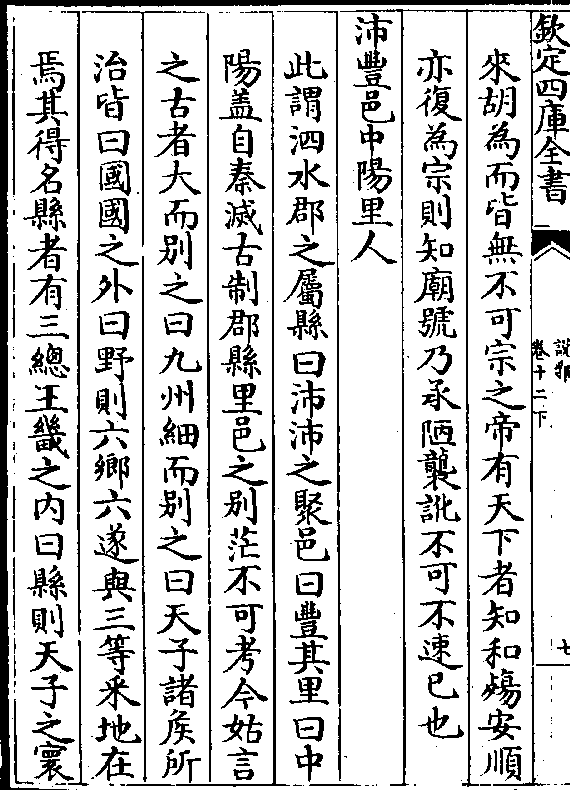 欽定四庫全書
說郛
卷十二下
七
來胡為而皆無不可宗之帝有天下者知和殤安順
亦復為宗則知廟號乃承陋襲訛不可不速已也
沛豐邑中陽里人
此謂泗水郡之屬縣曰沛沛之聚邑曰豐其里曰中
陽盖自秦滅古制郡縣里邑之别茫不可考今姑言
之古者大而别之曰九州細而别之曰天子諸侯所
治皆曰國國之外曰野則六鄉六遂與三等釆地在
焉其得名縣者有三總王畿之内曰縣則天子之寰